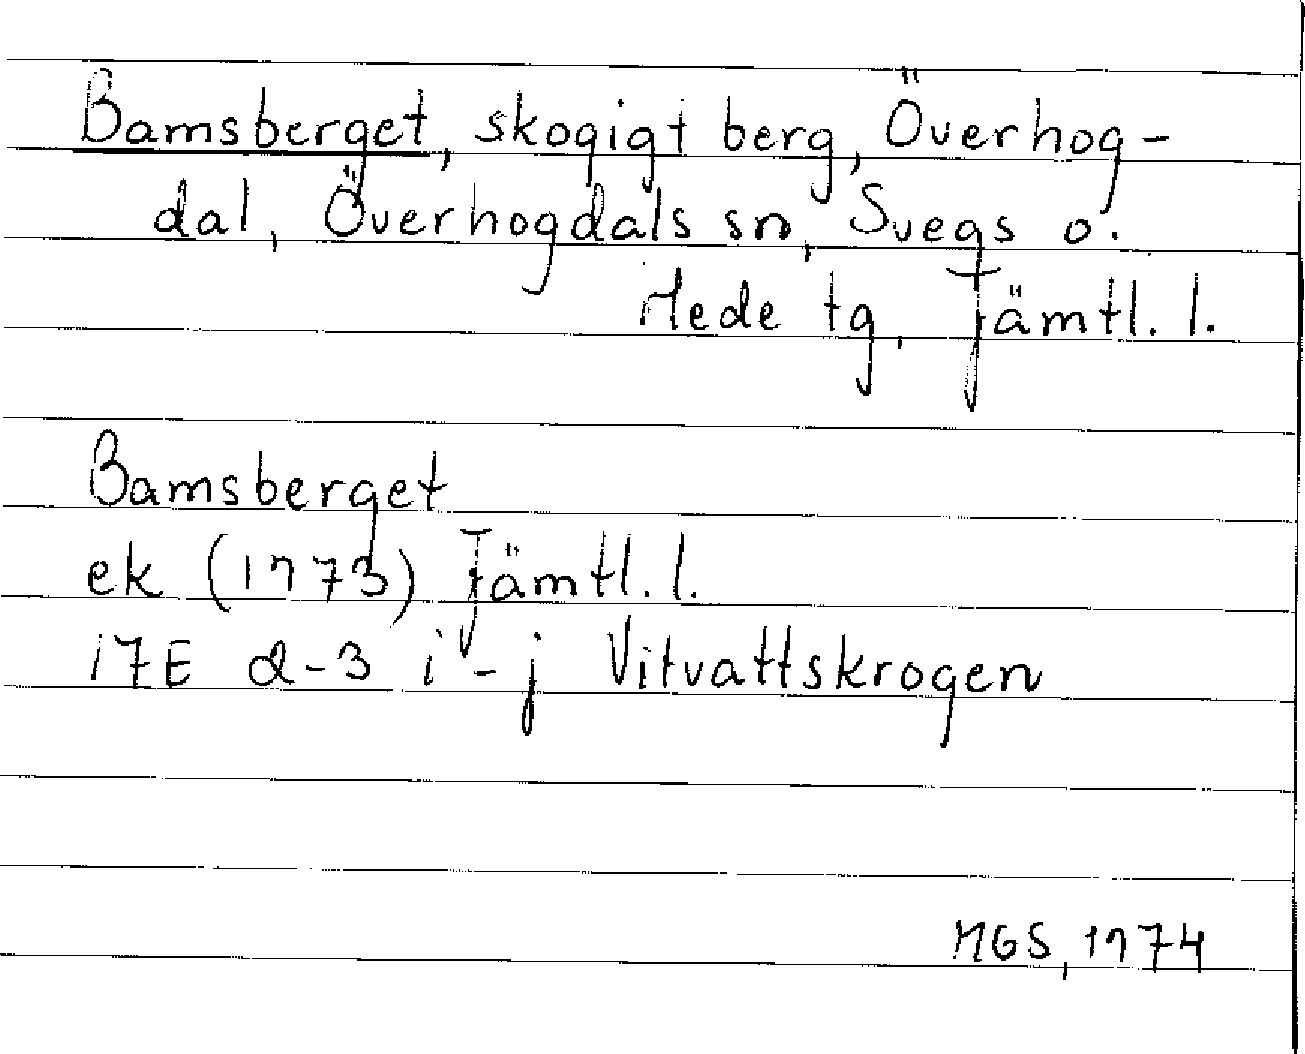 Bamsberget, skogigt berg, Överhog-
dal, Överhogdals sn, Svegs o.
Hede tg, Jämtl. l.
Bamsberget
ek (1973) Jämtl. l.
17E 2-3 i-j Vitvattskrogen
MGS, 1974